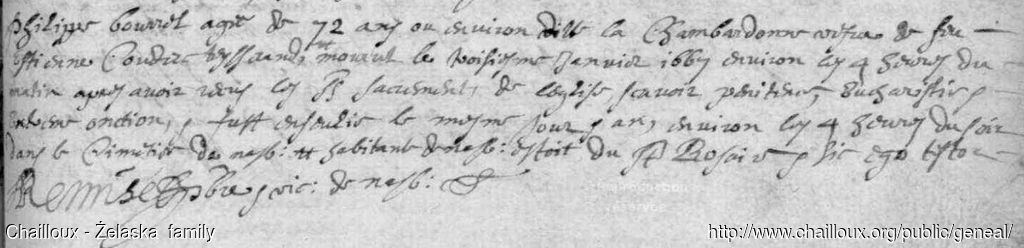 Philippe bourret agee de 72 ans ou environ ditte la Chambardonne vefve de feu
Estienne Coudert tissrand mourut le troisiesme Janvier 1667 environ les 4 heures du
matin apres avoir receus les sts sacrements de leglise scavoir penitence, Eucharistie &
extreme onction, & fust ensevelie le mesme jour & an, environ les 4 heures du soir
dans le Cimetiere de nasb: et habitante de nasb: estoit du St Rosaire & sic ego testor
vic: de nasb:
Chailloux - Żelaska family
http://www.chailloux.org/public/geneal/